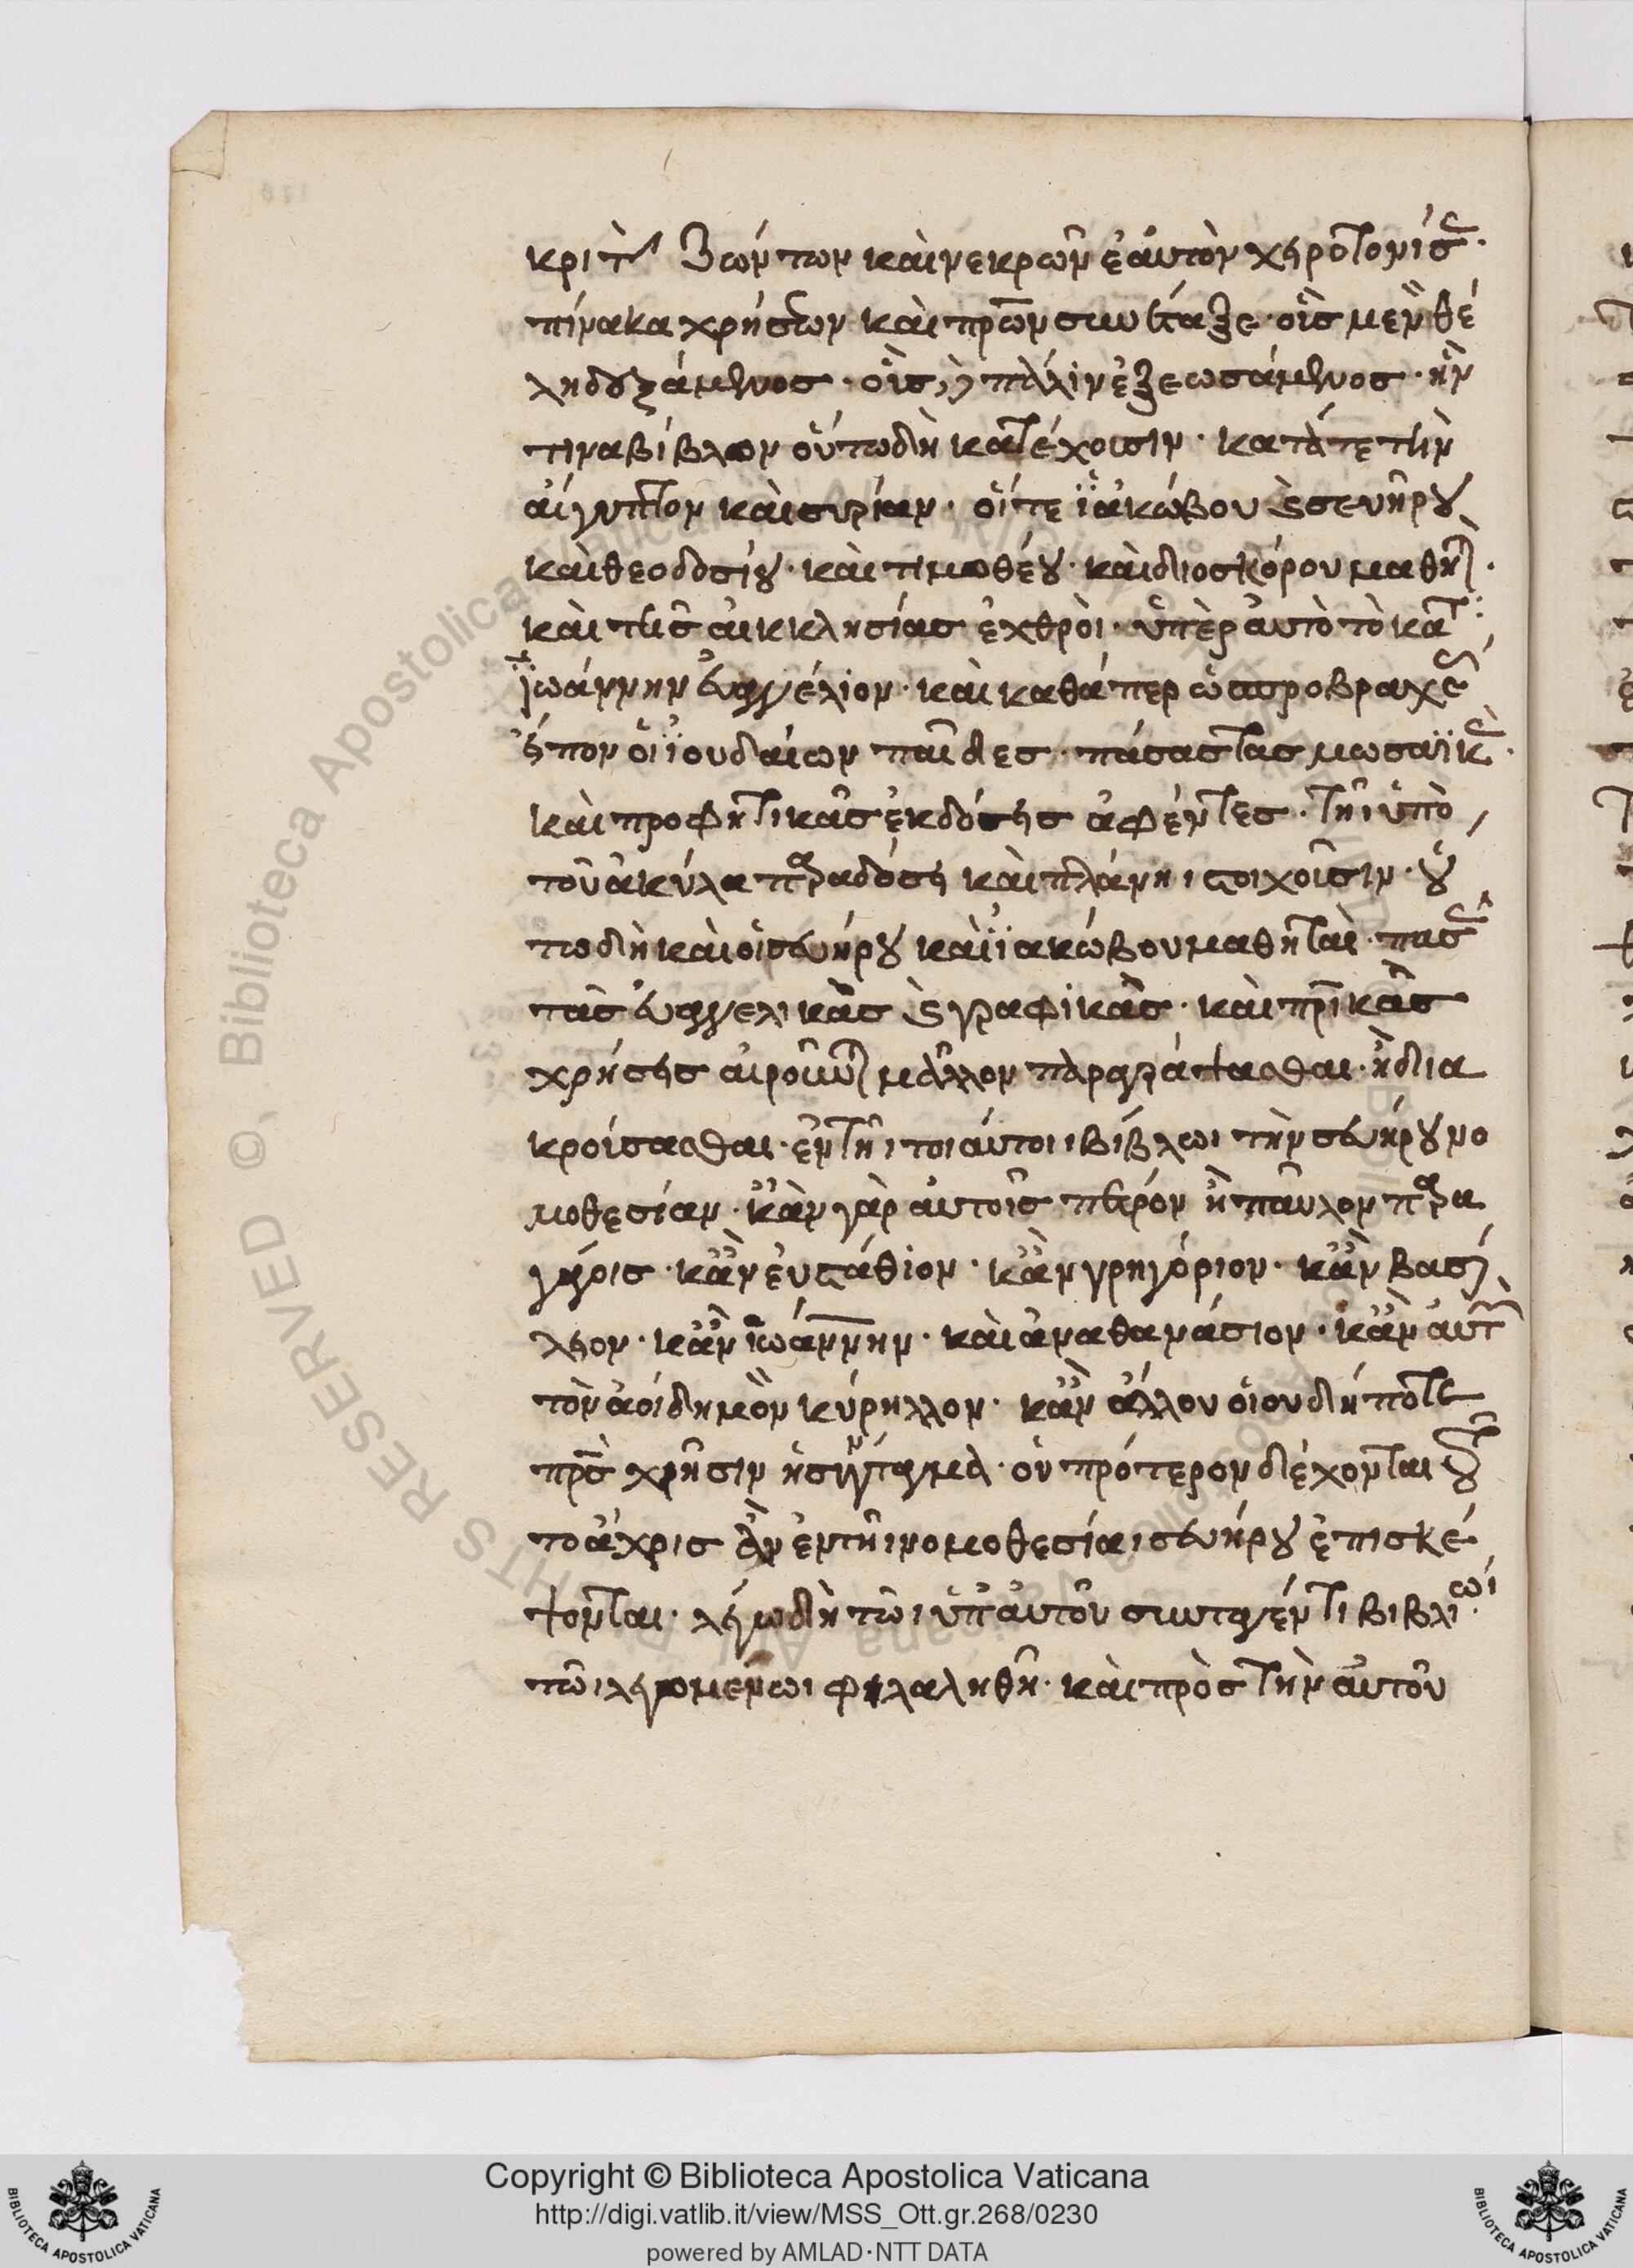 κριτ(ὴν) ζώντων καὶ νεκρῶν ἑαυτὸν χειροτονίσας·
πίνακα χρήσεων καὶ πρων συνέταξε· οἷς μὲν θέ
λη δοξάμενος· οἷς δὲ πάλιν ἐξεωσάμενος· ἥν
τινα βίβλον οὕπω δὴ κατέχουσιν· κατά τε τὴν
αἴγυπτον καὶ συρίαν· οἵ τε ϊακώβου καὶ σευήρου
καὶ θεοδοσίου· καὶ τιμοθέου· καὶ διοσκόρου μαθητ(αὶ)·
καὶ τῆς αἰκκλησίας ἐχθροὶ· ὑπὲρ αὐτὸ τὸ κατ(ὰ)
ϊωάννην εὐαγγέλιον· καὶ καθάπερ ὡ προβραχέως
εἶπον οἱ ϊουδαίων παῖδες· πάσας τὰς μωσαϊκὰς·
καὶ προφητικὰς ἐκδόσεις ἀφέντες· τῆι ὑπὸ
τοῦ ἀκύλα παραδόσει καὶ πλάνηι στοιχοῦσιν· οὕ
πω δὴ καὶ οἱ σευήρου καὶ ϊακώβου μαθηταὶ· πάσας
τὰς εὐαγγελικὰς καὶ γραφικὰς· καὶ πρικὰς
χρήσεις αἱροῦνται μᾶλλον παραγράψασθαι· ἢ δια
κρούσασθαι· ἐν τῆι τοιαύτοι βίβλωι τὴν σευήρου νο
μοθεσίαν· κἂν γὰρ αὐτοῖς πέτρον ἢ παῦλον παρα
γάγοις· κἂν εὐστάθιον· κἂν γρηγόριον· κἂν βασί
λειον· κἂν ϊωάννην· καὶ ἀναθανάσιον· κἂν αὐτὸν
τὸν ἀοίδημον κύρηλλον· κἂν ἄλλον οἱονδήποτε
πρὸς χρῆσιν ἢ σύνταγμα· οὐ πρότερον δέχονται τοῦ
το ἄχρις ἂν ἐν τῆι νομοθεσίαι σευήρου ἐπισκέ
ψονται· λέγω δὴ τῶι ὑπ' αὐτοῦ συνταγέντι βιβλίωι·
τῶι λεγομένωι φιλαληθῆ· καὶ πρὸς τὴν αὐτοῦ
Copyright © Biblioteca Apostolica Vaticana
http://digi.vatlib.it/view/MSS_Ott.gr.268/0230
powered by AMLAD·NTT DATA